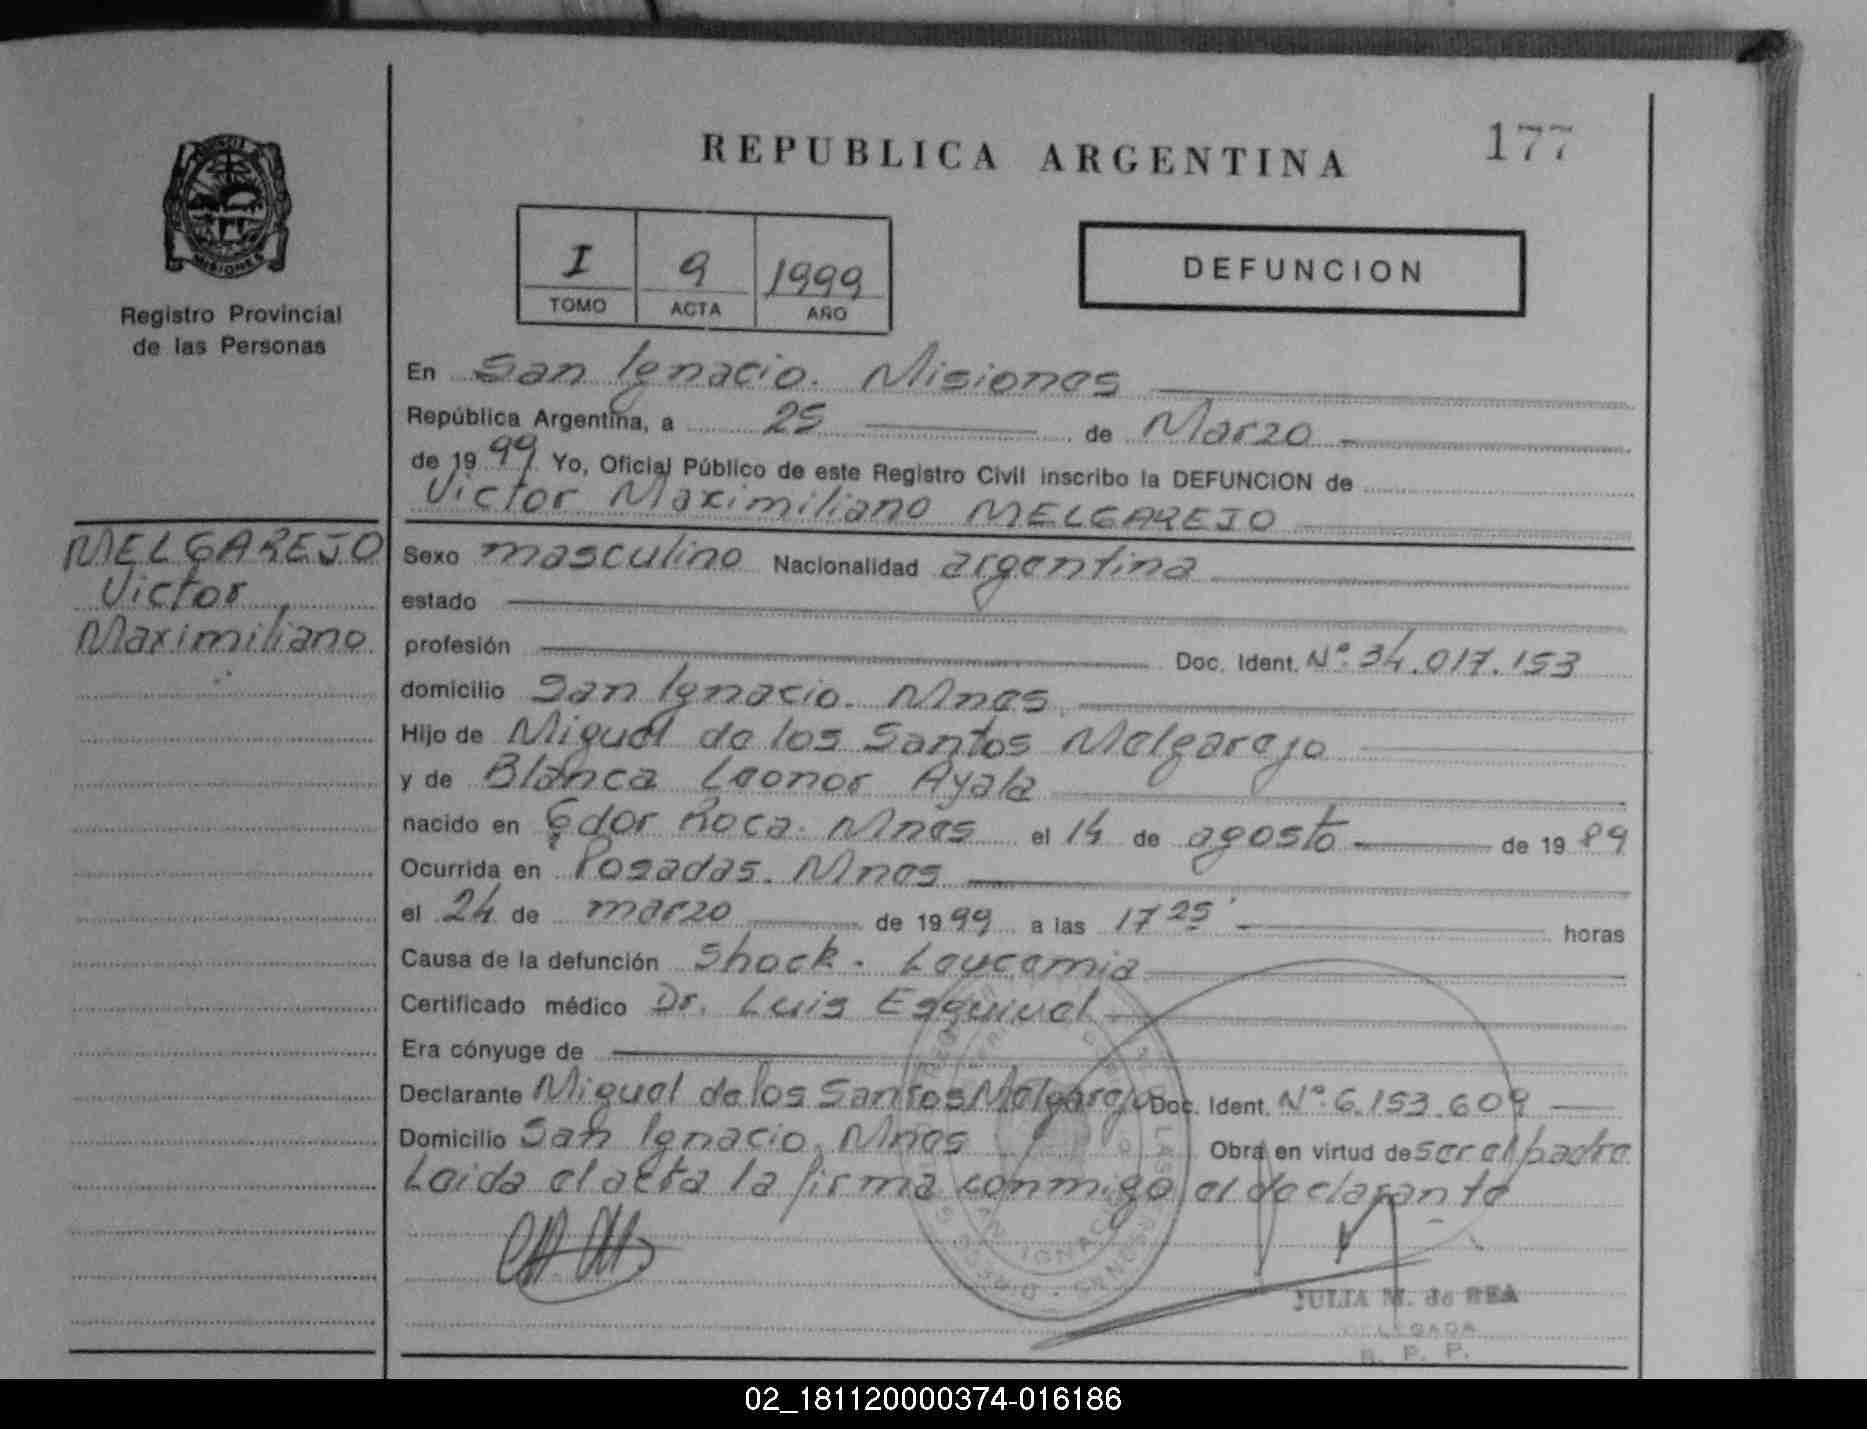 REPUBLICA ARGENTINA
177
I 9 1999
TOMO ACTA AÑO
DEFUNCION
MISIONES
Registro Provincial
de las Personas
En San Ignacio. Misiones
República Argentina, a 25 de Marzo
de 1999. Yo, Oficial Público de este Registro Civil inscribo la DEFUNCION de
Victor Maximiliano MELGAREJO
MELGAREJO
Victor
Maximiliano
Sexo masculino Nacionalidad argentina
estado
profesión Doc. Ident. Nº 34.017.153
domicilio San Ignacio. Mnes
Hijo de Miguel de los Santos Melgarejo
y de Blanca Leonor Ayala
nacido en Gdor Roca. Mnes el 14 de agosto de 1989
Ocurrida en Posadas. Mnes
el 24 de marzo de 1999 a las 17 25' horas
Causa de la defunción Shock. Leucemia
Certificado médico Dr. Luis Esquivel
Era cónyuge de
Declarante Miguel de los Santos Melgarejo Doc. Ident. Nº 6.153.609
Domicilio San Ignacio, Mnes Obra en virtud de ser el padre
Leida el acta la firma conmigo el declarante
SAN IGNACIO
JULIA M. de REA
DELEGADA
R. P. P.
02_181120000374-016186